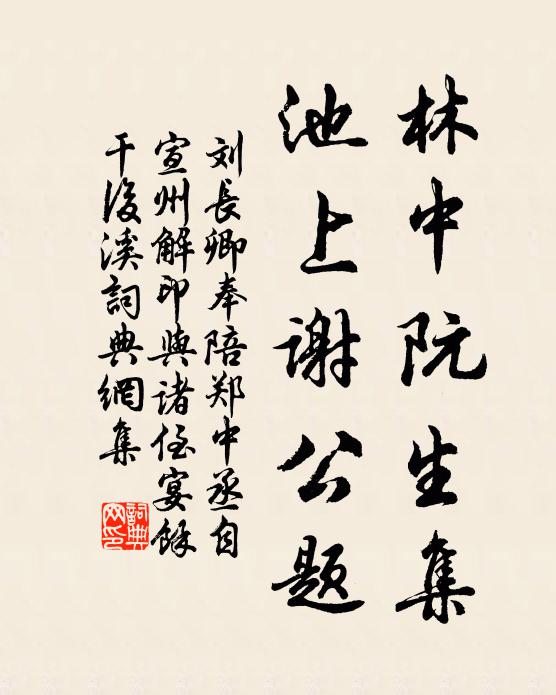 林中阮生集
池上谢公题
刘長卿奉陪郑中丞自
宣州解印與诸侄宴餘
干後溪詞典網集
詞典
网印